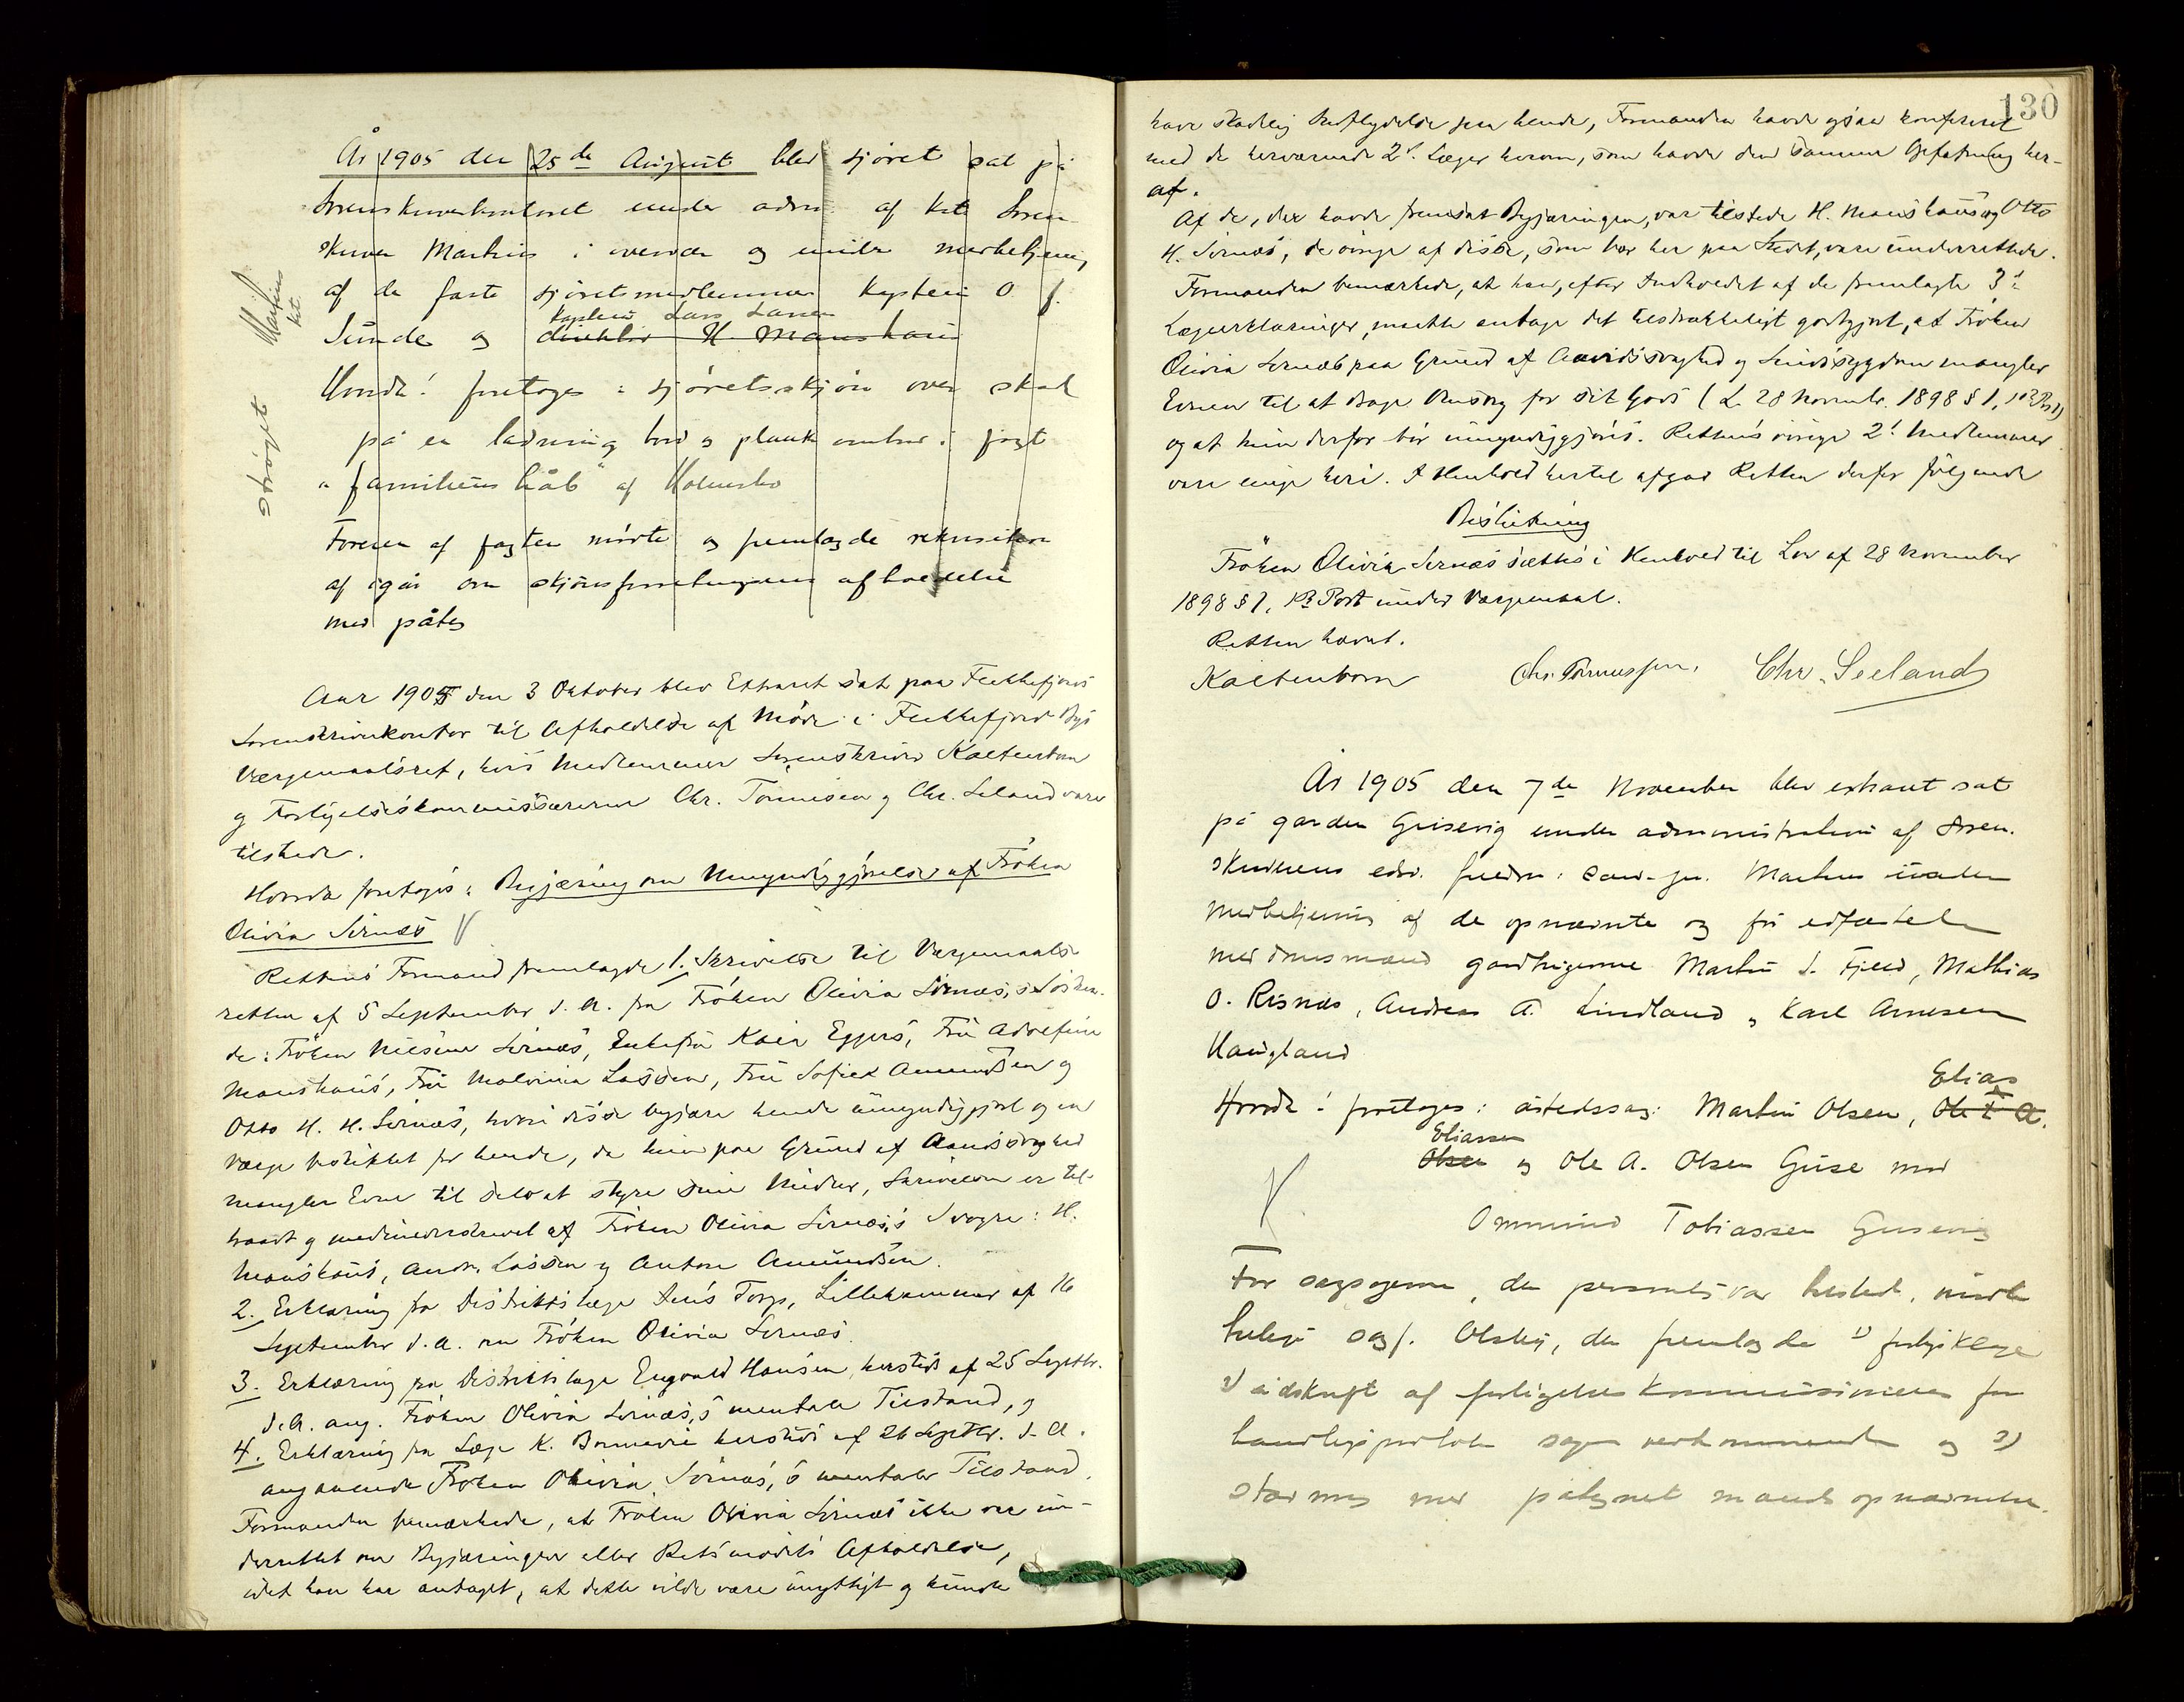 År 1905 den 25de August blev sjöret sat på
Sorenskriverkontoret under adm. af kst Soren
skriver Martins i overvær og under medbetjening
af de faste sjöretsmedlemmer kaptein O. f.
kaptein Lars Larsen
Sunde og direktör H. Manshaus
Hvorda! foretoges: sjöretsskjön over skade
på en ladning bord og plank ombord i jagt
"familiens håb" af Holmsbo
Föreren af jagten mödte og fremlagde rekvisition
af igår om skjönsforretningens afholdelse
med påteg
Martins
kst.
ströget
Aar 1905 den 3 Oktober blev Extraret sat paa Flekkefjords
Sorenskriverkontor til Afholdelse af Möde i Flekkefjord Bys
Værgemaalsret, hvis Medlemmer Sorenskriver Kaltenborn
og Forligelseskommissærerne Chr. Tönnesen og Chr. Seland vare
tilstede.
Hvorda foretoges: Begjæring om Umyndiggjörelse af Fröken
Olivia Sirnæs
Rettens Formand fremlagde 1. Skrivelse til Værgemaals-
retten af 5 September d. A. fra Fröken Olivia Sirnæs,s Sösken-
de: Fröken Nilsine Sirnæs, Enkefru Kaia Eggers, Fru Adolfine
Manshaus, Fru Malvina Lassen, Fru Sofie Amundsen og
Otto H. H. Sirnæs, hvori disse begjære hende umyndiggjort og en
Værge beskikket for hende, da hun paa Grund af Aandssvaghed
mangler Evne til selv at styre sine Midler, Skrivelsen er til-
traadt og medunderskrevet af Fröken Olivia Sirnæs,s Svogre: H.
Manshaus, Andr. Lassen og Anton Amundsen.
2. Erklæring fra Distriktslæge Jens Torp, Lillehammer af 16
September d. A. om Fröken Olivia Sirnæs.
3. Erklæring fra Distriktslæge Engvald Hansen, hersteds af 25 Septbr.
d. A. ang. Fröken Olivia Sirnæs,s mentale Tilstand, og
4. Erklæring fra Læge K. Bonnevie hersteds af 26 Septbr. d. A.
angaaende Fröken Olivia Sirnæs,s mentale Tilstand.
Formanden bemærkede, at Fröken Olivia Sirnæs ikke var un-
derrettet om Begjæringen eller Retsmödets Afholdelse,
idet han har antaget, at dette vilde være unyttigt og kunde
130
have skadelig Indflydelse paa hende, Formanden havde ogsaa konfereret
med de herværende 2de Læger herom, som havde den samme Opfatning her-
af.
Af de, der havde fremsat Begjæringen, var tilstede H. Manshaus og Otto
H. Sirnæs, de övrige af disse, som bor her paa Stedet, vare underrettede.
Formanden bemærkede, at han, efter Indholdet af de fremlagte 3de
Lægeerklæringer, maatte antage det tilstrækkeligt godtgjort, at Fröken
Olivia Sirnæs paa Grund af Aandssvaghed og Sindssygdom mangler
Evnen til at drage Omsorg for sit Gods (L. 28 Novembr. 1898 § 1, 1ste Post)
og at hun derfor bör umyndiggjöres. Rettens övrige 2de Medlemmer
vare enige heri. I Henhold hertil afgav Retten derfor fölgende
Beslutning
Fröken Olivia Sirnæs sættes i Henhold til Lov af 28 November
1898 § 1, 1ste Post under Værgemaal.
Retten hævet.
Kaltenborn Chr. Tönnessen. Chr. Seeland
År 1905 den 7de November blev extraret sat
på garden Guisevig under administration af soren-
skriverens edsv. fuldm: cand. jur. Martins under
medbetjening af de opnævnte og för edfæstede
meddomsmænd gardbrugerne Martin S. Fjeld, Mathias
O. Risnæs, Andreas A. Lindland og Karl Arnesen
Haugland
Hvorda! foretoges: åstedssag: Martin Olsen, Elias
Eliassen
Olsen og Ole A. Olsen Guse mod
Ommund Tobiassen Gusevig
For sagsögerne, der personlig var tilstede, mödte
ifølge sagf. Olsby, der fremlagde 1) forligsklage
2) udskrift af forligelseskommissionens for
handlingsprotokol sagen vedkommende og 3)
stævning med påtegnet mandsopnævnelse.